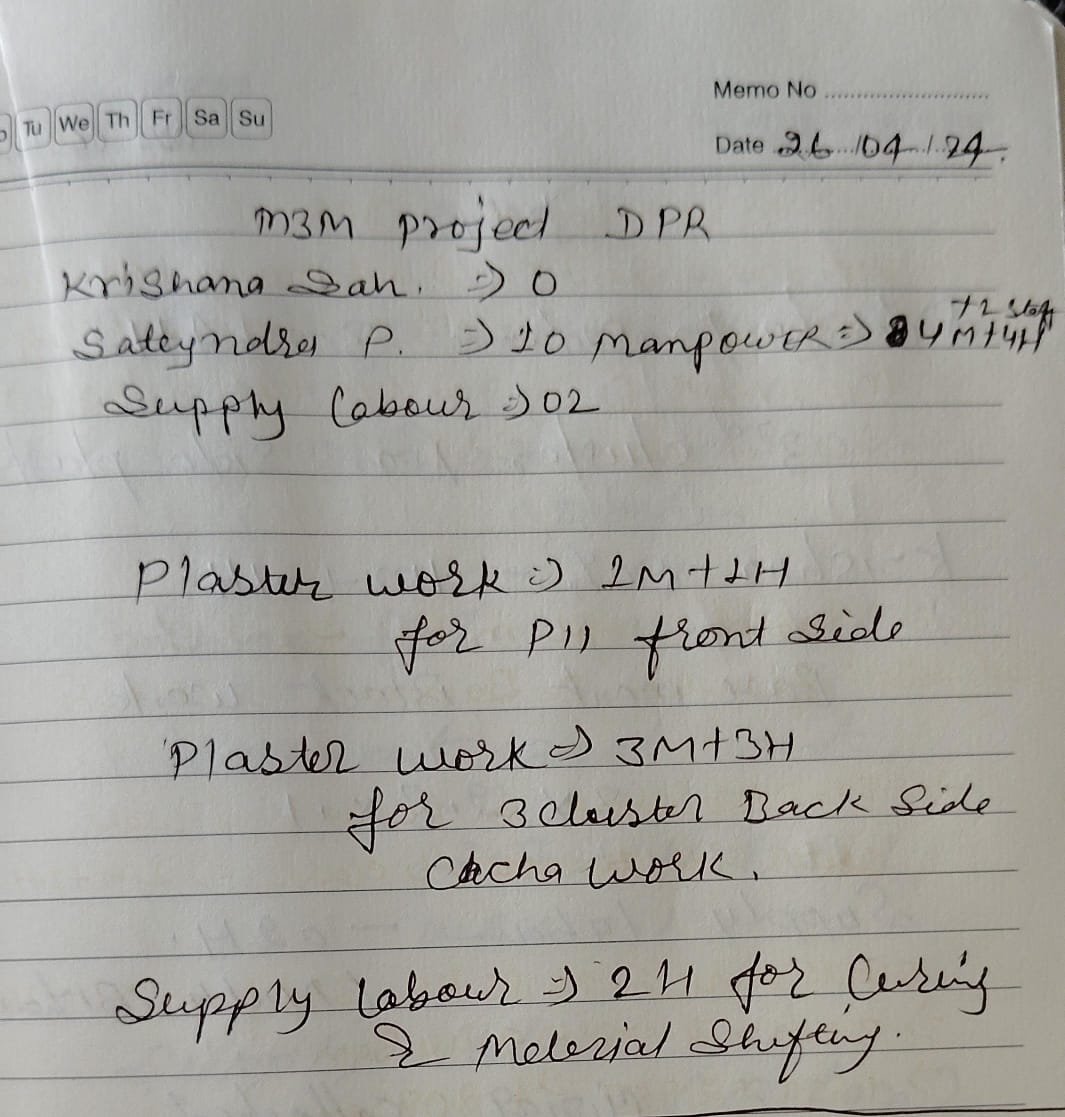 Tu We Th Fr Sa Su
Memo No
Date 26/04/24
M3M project DPR
Krishana Sah. => 0
+2 Staff
Sateyndra P. => 10 manpower => 4M+4H
Supply Labour => 02
Plaster work => 1M+1H
for P11 front side
Plaster work => 3M+3H
for 3 cluster Back Side
Cacha work.
Supply labour => 2H for Curing
& Meterial Shifting.